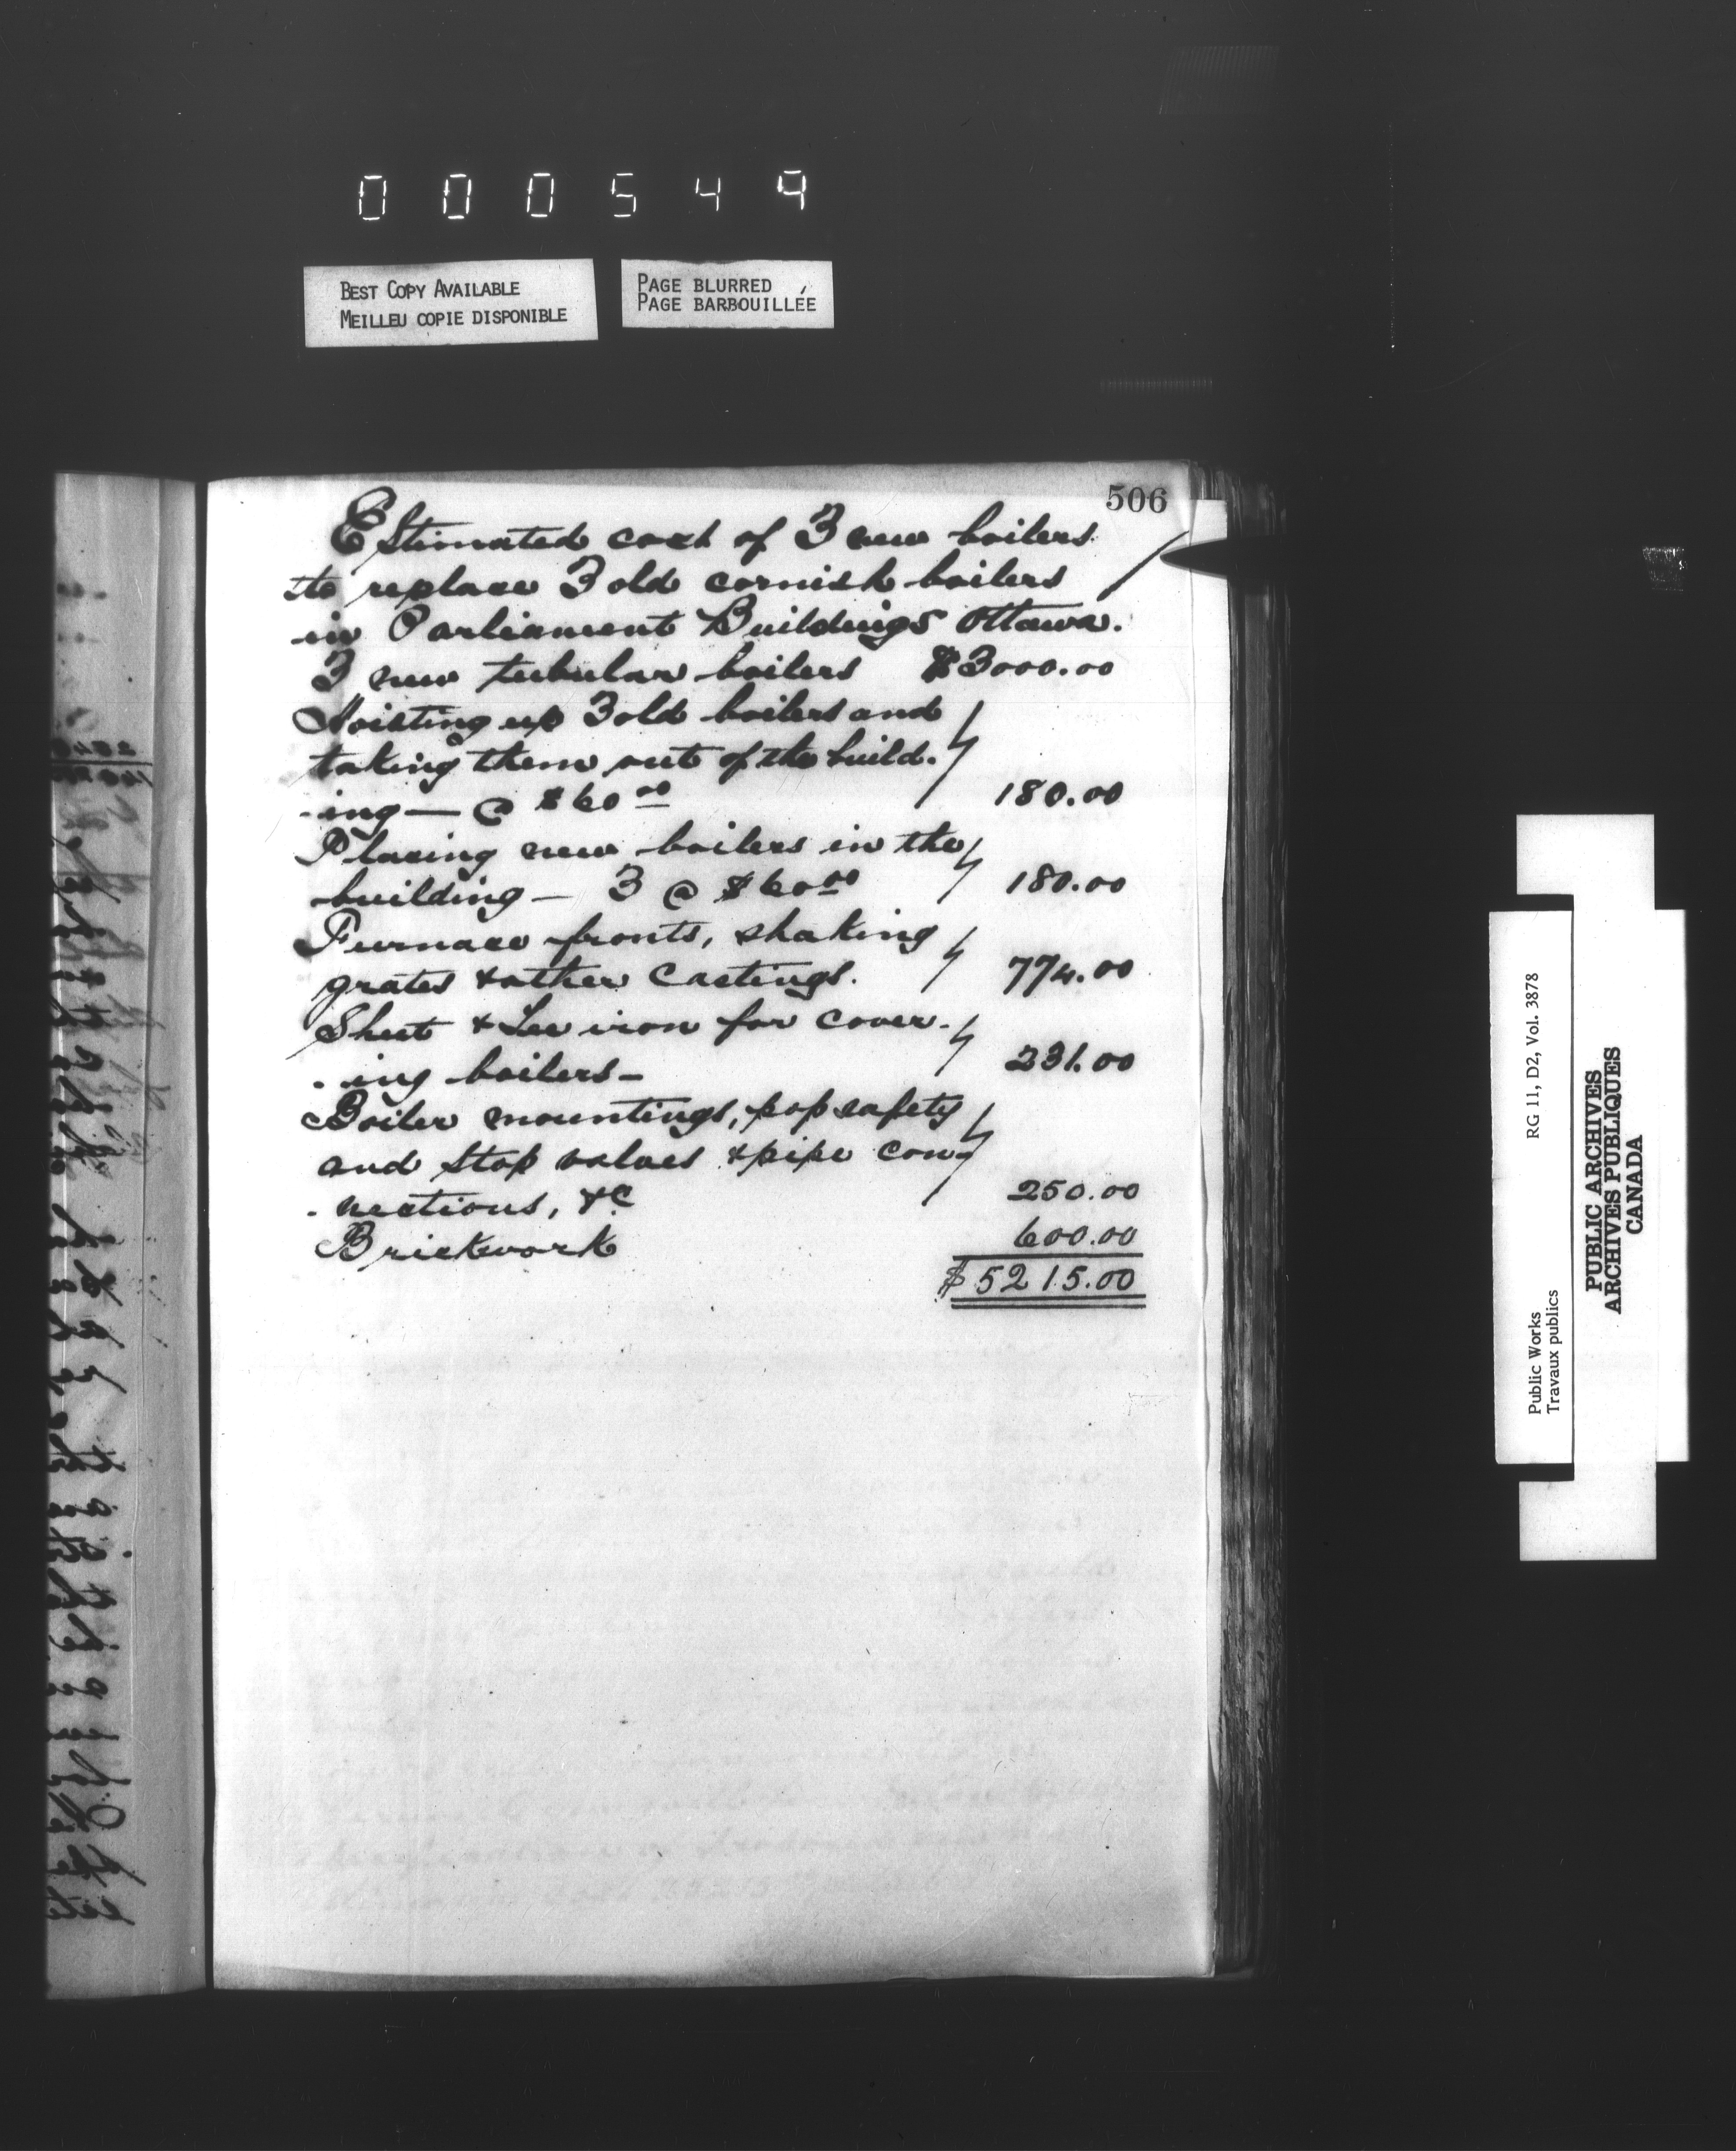 000549
BEST COPY AVAILABLE
MEILLEU COPIE DISPONIBLE
PAGE BLURRED
PAGE BARBOUILLÉE
506
Estimated cost of 3 new boilers
to replace 3 old cornish boilers
in Parliament Buildings Ottawa.
3 new tubular boilers $3000.00
Hoisting up 3 old boilers and
taking them out of the build.
-ing — @ $60 00 180.00
Placing new boilers in the
building — 3 @ $60 00 180.00
Furnace fronts, shaking
grates & other Castings. 774.00
Sheet & Tee iron for cover-
-ing boilers — 231.00
Boiler mountings, pop safety
and stop valves & pipe con-
-nections, &c 250.00
Brickwork 600.00
$5215.00
Public Works
Travaux publics
RG 11, D2, Vol. 3878
PUBLIC ARCHIVES
ARCHIVES PUBLIQUES
CANADA